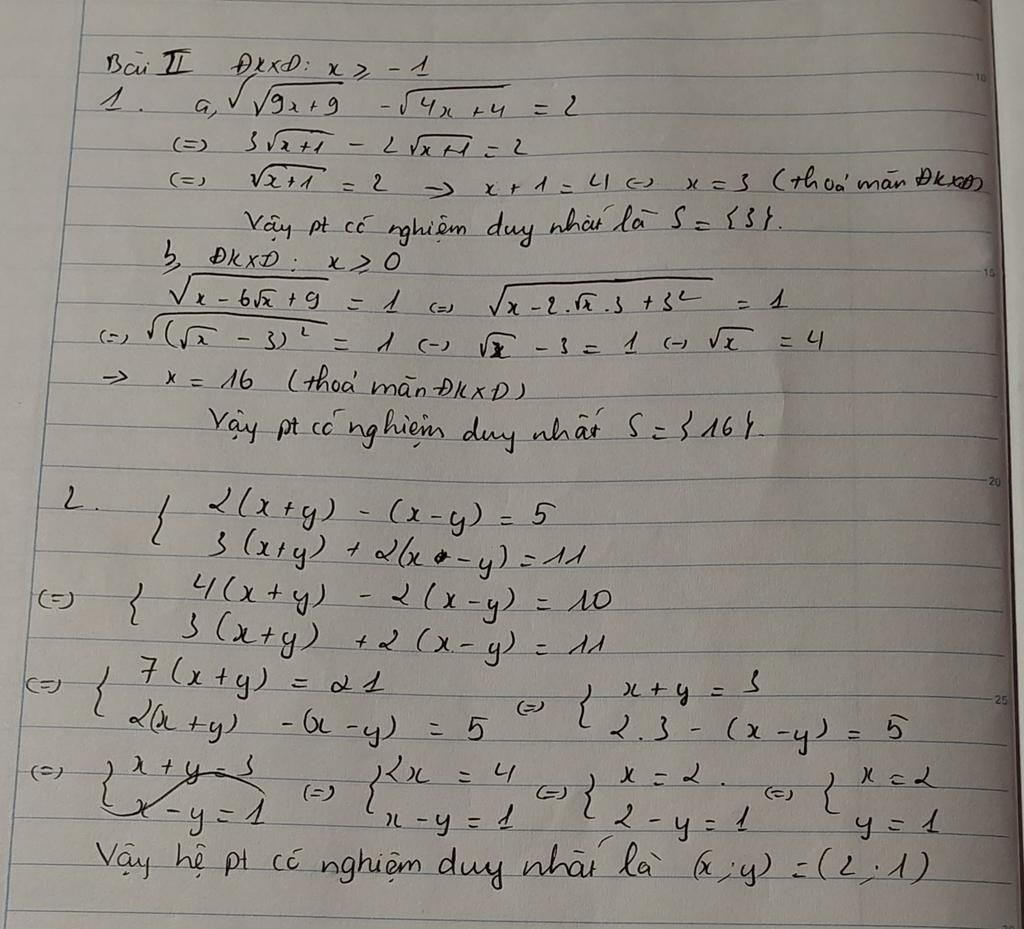 Bài II ĐKXĐ: x ≥ -1
1. a, √√9x+9 - √4x+4 = 2
(=) 3√x+1 - 2√x+1 = 2
(=) √x+1 = 2 → x+1 = 4 (-) x = 3 (thoả mãn ĐKXĐ)
Vậy pt có nghiệm duy nhất là S = {3}.
b, ĐKXĐ: x ≥ 0
√x - 6√x + 9 = 1 (=) √x - 2.√x.3 + 3² = 1
(=) √(√x - 3)² = 1 (-) √x - 3 = 1 (-) √x = 4
→ x = 16 (thoả mãn ĐKXĐ)
Vậy pt có nghiệm duy nhất S = {16}.
2. { 2(x+y) - (x-y) = 5
3(x+y) + 2(x-y) = 11
(=) { 4(x+y) - 2(x-y) = 10
3(x+y) + 2(x-y) = 11
(=) { 7(x+y) = 21 (=) { x+y = 3
2(x+y) - (x-y) = 5 2.3 - (x-y) = 5
(=) { x+y = 3 (=) { 2x = 4 (=) { x = 2. (=) { x = 2
x-y = 1 x-y = 1 2-y = 1 y = 1
Vậy hệ pt có nghiệm duy nhất là (x;y) = (2;1)